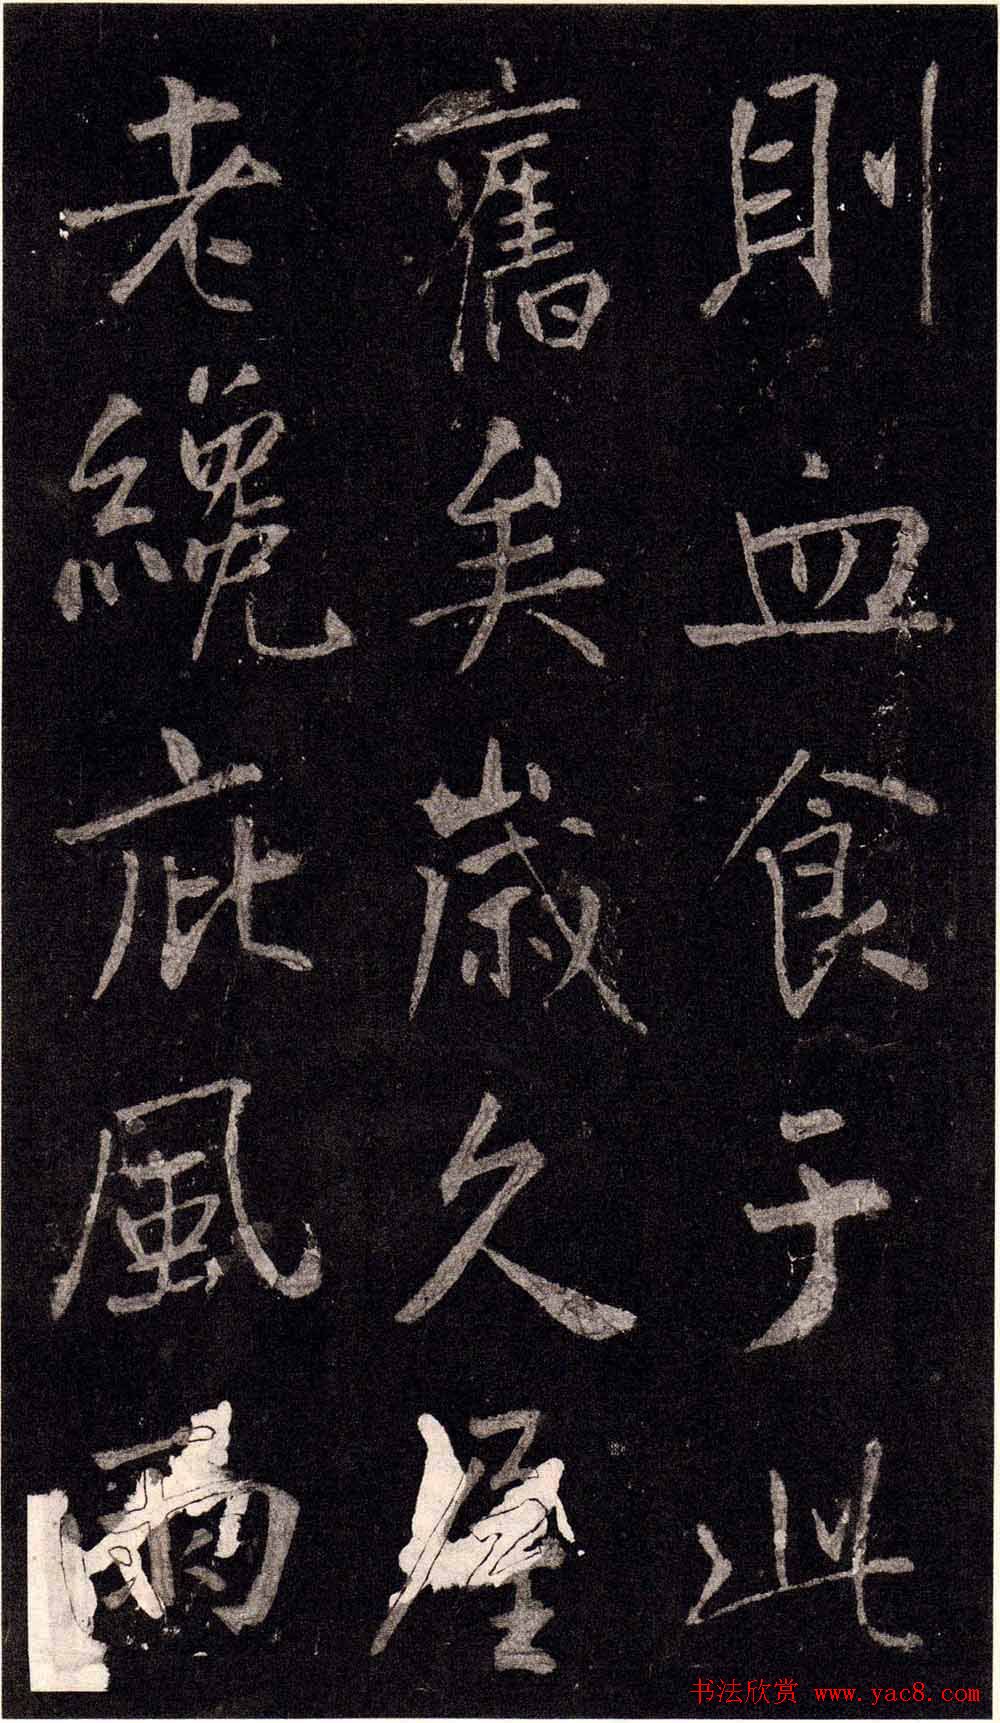 則血食于此
舊矣歲久屋
老纔庇風雨
书法欣赏 www.yac8.com